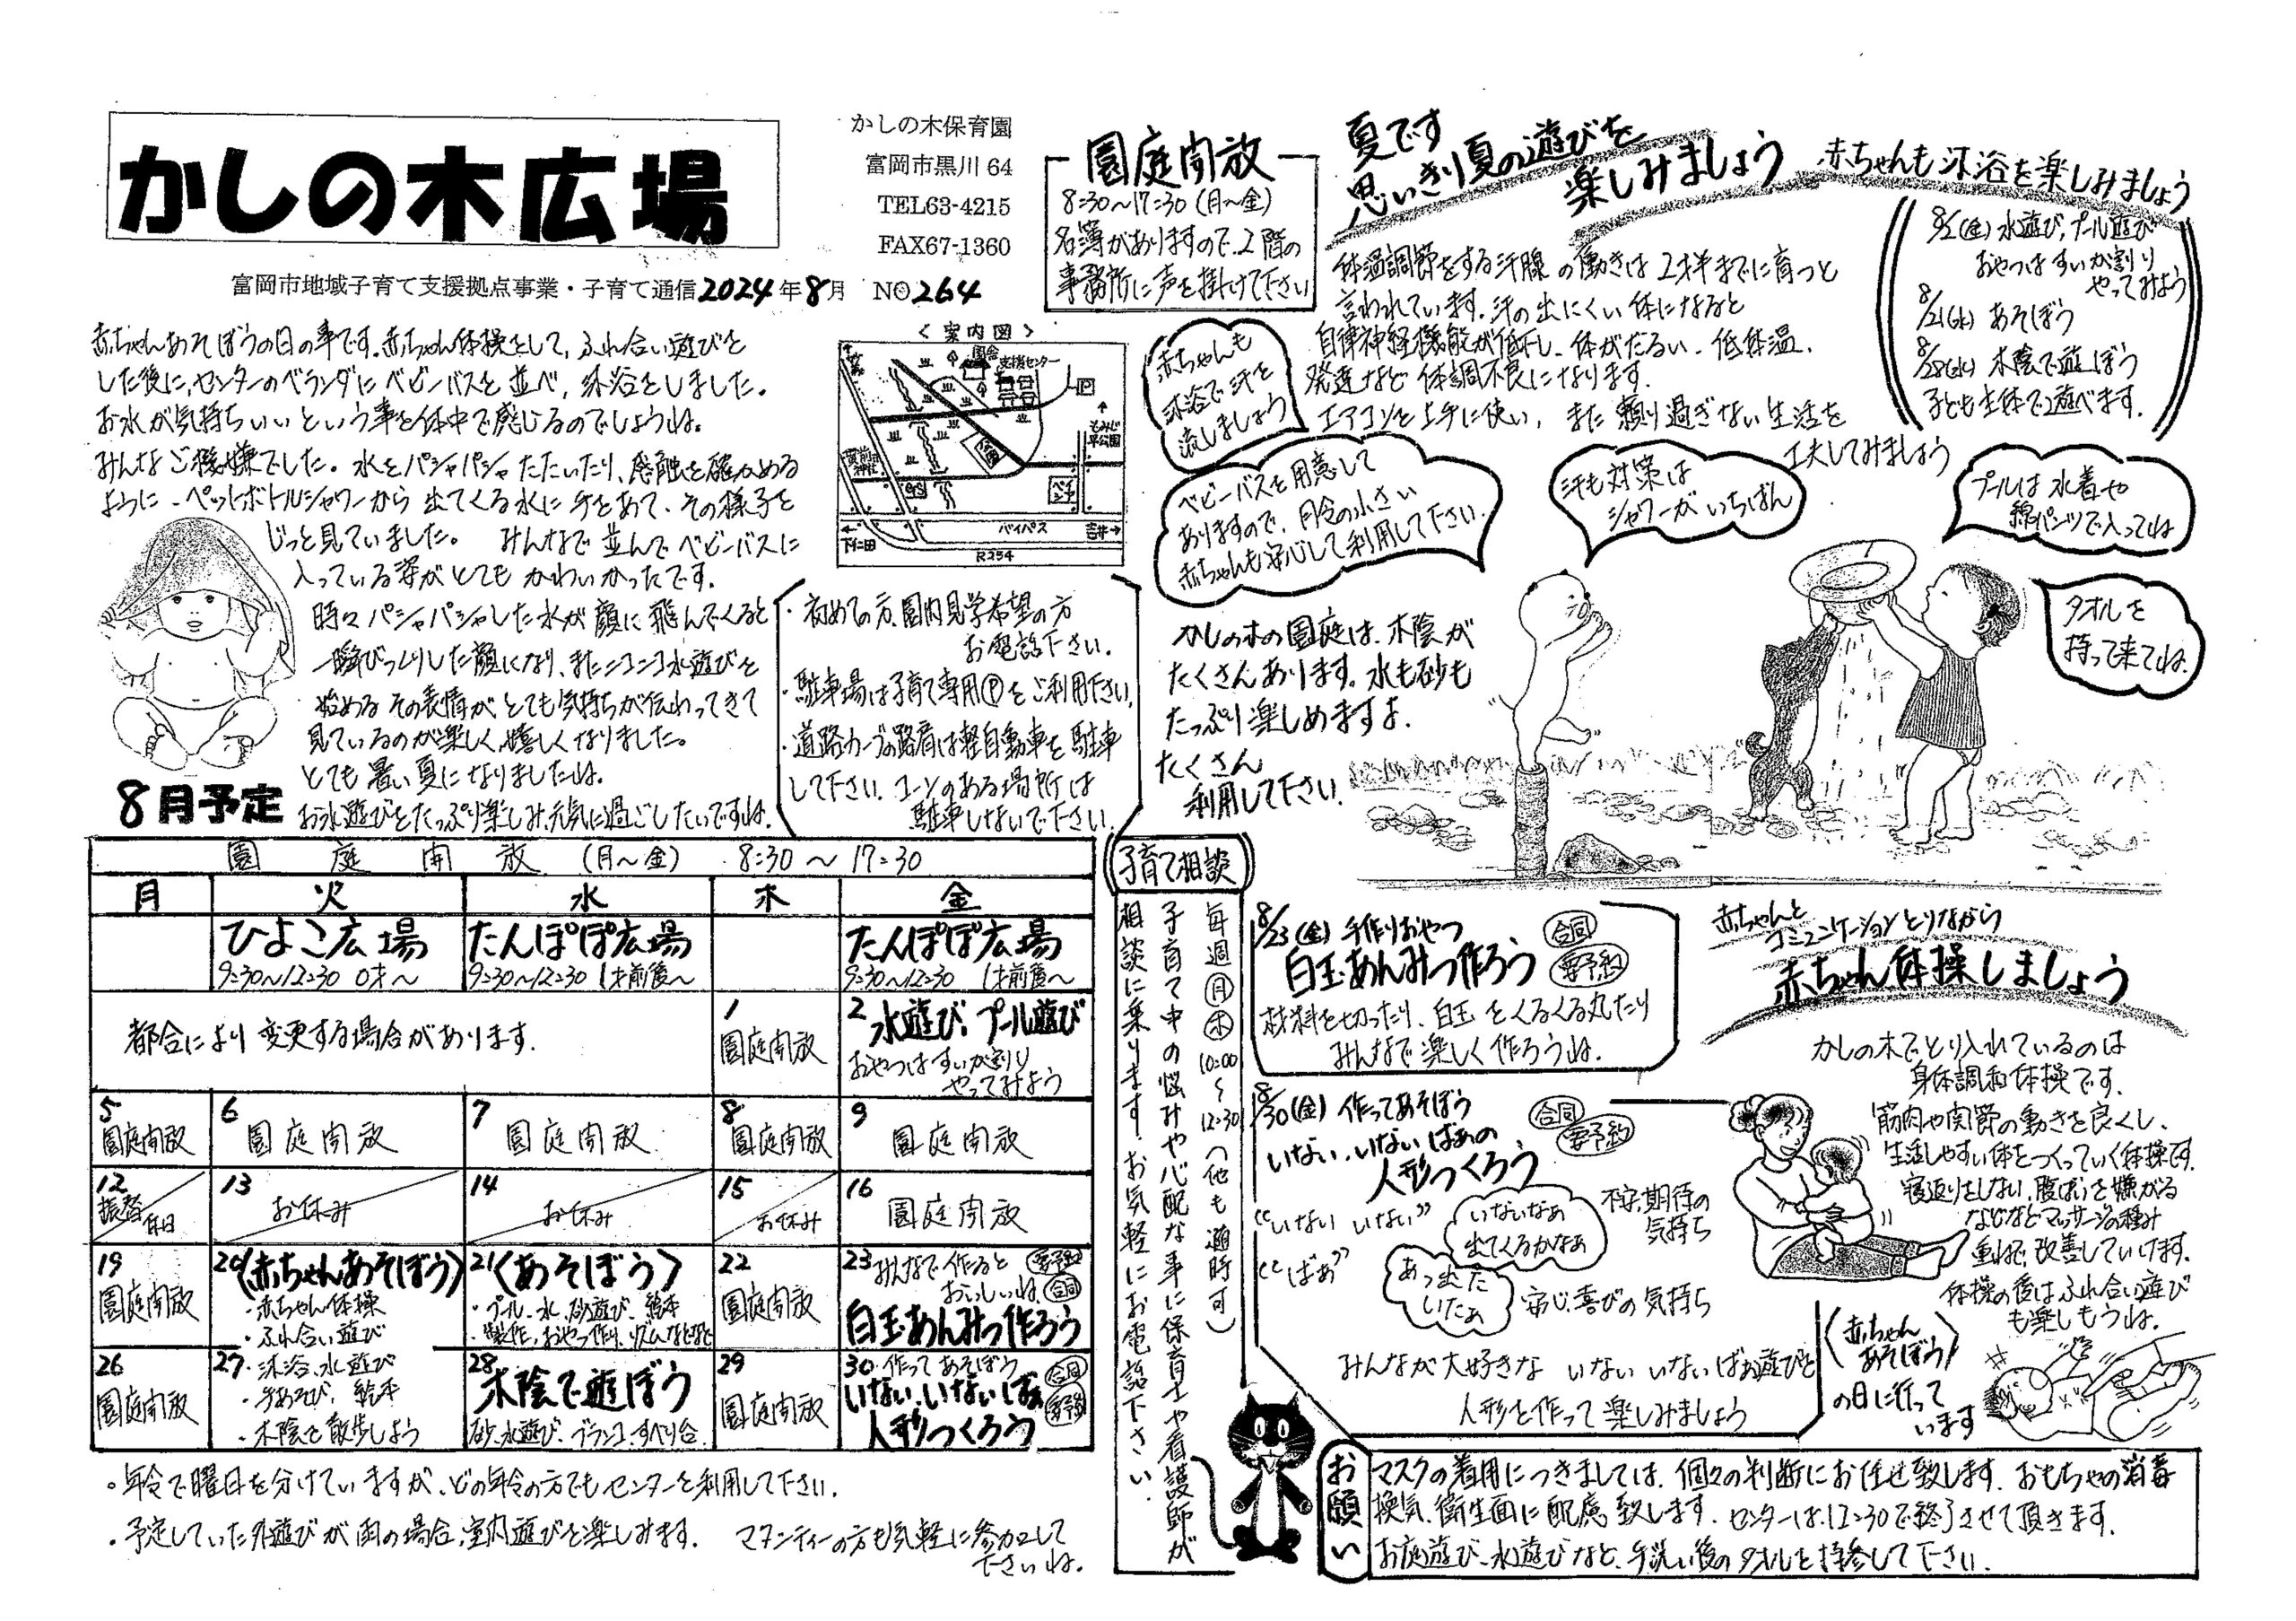 かしの木広場
かしの木保育園
富岡市黒川 64
TEL63-4215
FAX67-1360
富岡市地域子育て支援拠点事業・子育て通信2024年8月 NO264
赤ちゃんあそぼうの日の事です。赤ちゃん体操をして、ふれ合い遊びを
した後に、センターのベランダにベビーバスを並べ、沐浴をしました。
お水が気持ちいいという事を体中で感じるのでしょうね。
みんなご機嫌でした。水をパシャパシャたたいたり、感触を確かめる
ように、ペットボトルシャワーから出てくる水に手をあて、その様子を
じっと見ていました。 みんなで並んでベビーバスに
入っている姿がとてもかわいかったです。
時々パシャパシャした水が顔に飛んでくると
一瞬びっくりした顔になり、またニコニコ水遊びを
始めるその表情がとても気持ちが伝わってきて
見ているのが楽しく、嬉しくなりました。
とても暑い夏になりましたね。
お水遊びをたっぷり楽しみ、元気に過ごしたいですね。
園庭開放
8:30〜17:30 (月〜金)
名簿がありますので、2階の
事務所に声を掛けて下さい
<案内図>
園舎
支援センター
P
もみじ平公園
バイパス
下仁田
吉井
R254
・初めての方、園内見学希望の方
お電話下さい。
・駐車場は子育て専用Pをご利用下さい。
・道路カーブの路肩は軽自動車を駐車
して下さい。コーンのある場所は
駐車しないで下さい。
夏です
思いきり夏の遊びを
楽しみましょう
赤ちゃんも沐浴を楽しみましょう
体温調節をする汗腺の働きは2才半までに育つと
言われています。汗の出にくい体になると
自律神経機能が低下し、体がだるい、低体温、
発達など体調不良になります。
エアコンを上手に使い、また頼り過ぎない生活を
工夫してみましょう
8/2(金) 水遊び、プール遊び
おやつはすいか割り
やってみよう
8/21(水) あそぼう
8/28(水) 木陰で遊ぼう
子ども主体で遊べます。
赤ちゃんも
沐浴で汗を
流しましょう
ベビーバスを用意して
ありますので、月令の小さい
赤ちゃんも安心して利用して下さい。
汗も対策は
シャワーがいちばん
プールは水着や
綿パンツで入ってね
タオルを
持って来てね。
かしの木の園庭は、木陰が
たくさんあります。水も砂も
たっぷり楽しめますよ。
たくさん
利用して下さい。
8月予定
園庭開放 (月〜金) 8:30〜17:30
月 火 水 木 金
ひよこ広場 たんぽぽ広場 たんぽぽ広場
9:30〜12:30 0才〜 9:30〜12:30 1才前後〜 9:30〜12:30 1才前後〜
都合により変更する場合があります。
1 園庭開放
2 水遊び、プール遊び
おやつはすいか割り
やってみよう
5 園庭開放
6 園庭開放
7 園庭開放
8 園庭開放
9 園庭開放
12 振替休日
13 お休み
14 お休み
15 お休み
16 園庭開放
19 園庭開放
20 〈赤ちゃんあそぼう〉
・赤ちゃん体操
・ふれ合い遊び
21 〈あそぼう〉
・プール、水、砂遊び、絵本
・製作、おやつ作り、リズムなどなど
22 園庭開放
23 みんなで作ると 要予約
おいしいね 合同
白玉あんみつ作ろう
26 園庭開放
27 ・沐浴、水遊び
・手あそび、絵本
・木陰を散歩しよう
28 木陰で遊ぼう
砂、水遊び、ブランコ、すべり台
29 園庭開放
30 作ってあそぼう 合同
いない、いないばぁ 要予約
人形つくろう
。年令で曜日を分けていますが、どの年令の方でもセンターを利用して下さい。
・予定していた外遊びが雨の場合、室内遊びを楽しみます。 マタニティーの方も気軽に参加して
下さいね。
子育て相談
毎週月木 10:00〜12:30 (他も随時可)
子育て中の悩みや心配な事に保育士や看護師が
相談に乗ります。お気軽にお電話下さい。
8/23(金) 手作りおやつ 合同
白玉あんみつ作ろう 要予約
材料を切ったり、白玉をくるくる丸たり
みんなで楽しく作ろうね。
8/30(金) 作ってあそぼう 合同
いない、いないばぁの 要予約
人形つくろう
“いない いない”
いないなぁ
出てくるかなぁ
不安、期待の
気持ち
“ばぁ”
あっ出た
いたぁ
安心、喜びの気持ち
みんなが大好きな いないいないばぁ遊びを
人形を作って楽しみましょう
赤ちゃんと
コミュニケーションとりながら
赤ちゃん体操しましょう
かしの木でとり入れているのは
身体調和体操です。
筋肉や関節の動きを良くし、
生活しやすい体をつくっていく体操です。
寝返りをしない、腹ばいを嫌がる
などなどマッサージの積み
重ねで、改善していけます。
体操の後はふれ合い遊び
も楽しもうね。
〈赤ちゃん
あそぼう〉
の日に行って
います
お願い
マスクの着用につきましては、個々の判断にお任せ致します。おもちゃの消毒
換気、衛生面に配慮致します。センターは、12:30で終了させて頂きます。
お庭遊び、水遊びなど、手洗い後のタオルを持参して下さい。